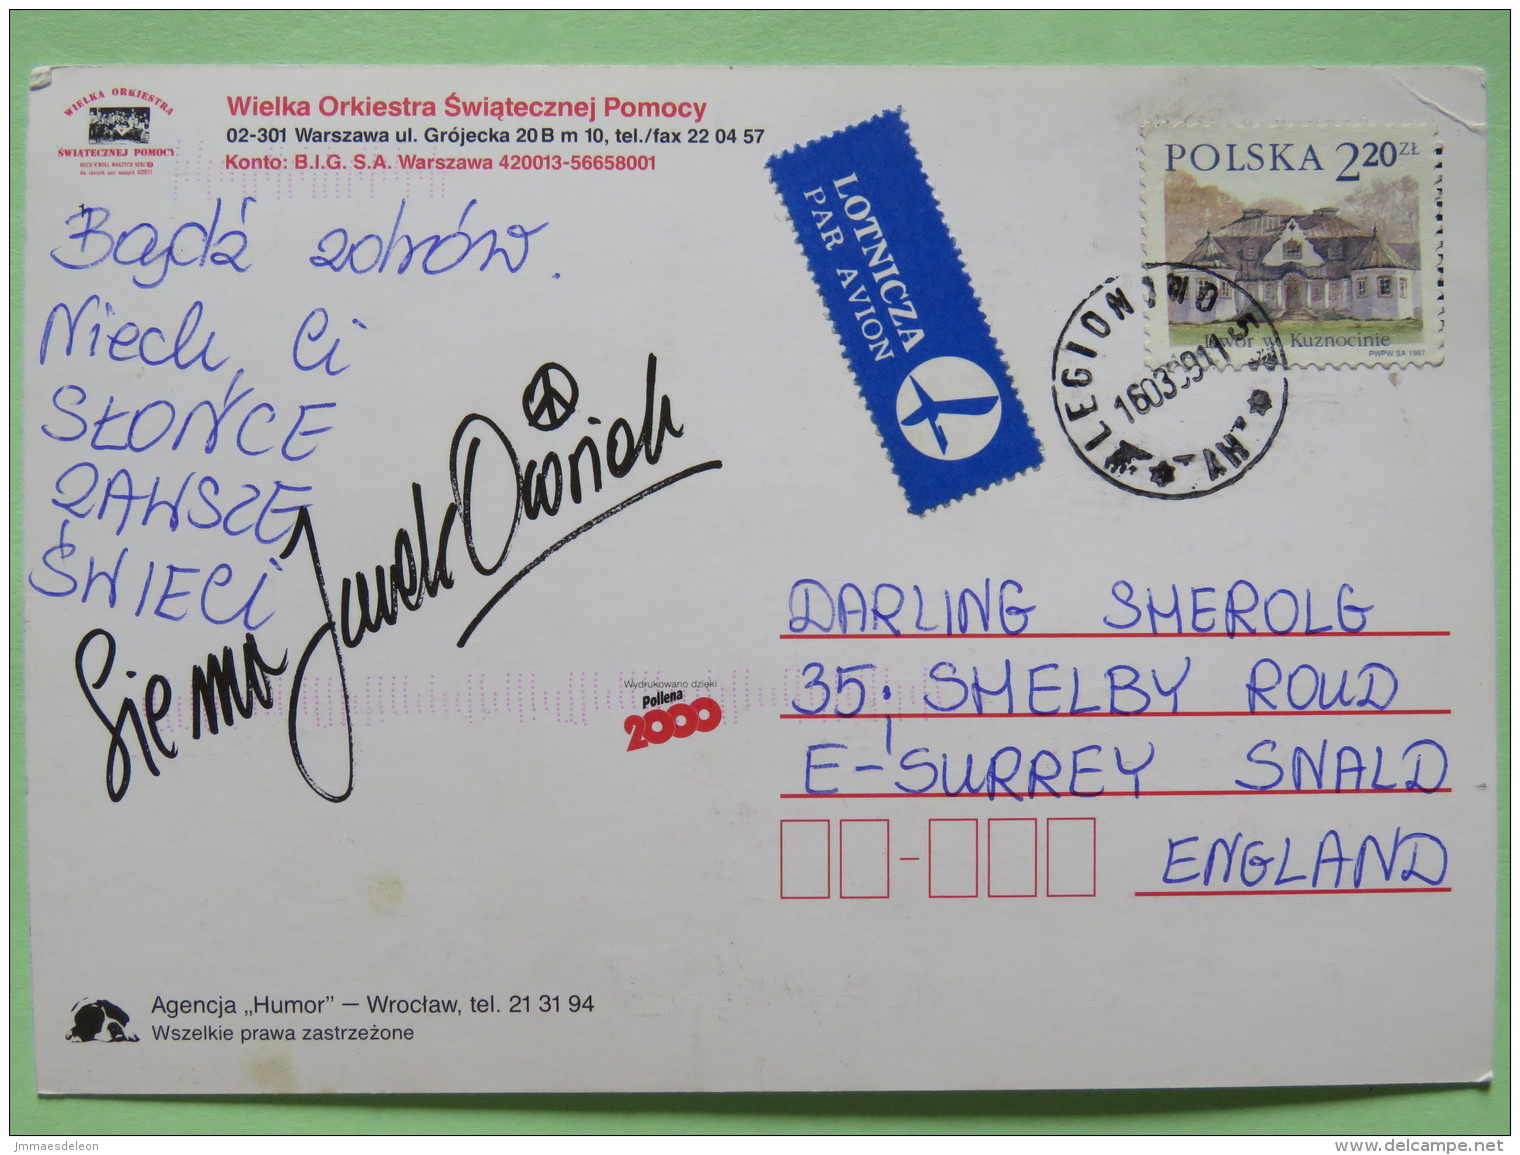 WIELKA ORKIESTRA
ŚWIĄTECZNEJ POMOCY
Wielka Orkiestra Świątecznej Pomocy
02-301 Warszawa ul. Grójecka 20 B m 10, tel./fax 22 04 57
Konto: B.I.G. S.A. Warszawa 420013-56658001
Bądź zdrów.
Niech Ci
SŁOŃCE
ZAWSZE
ŚWIECI
Sie ma Jurek Owsiak
Wydrukowano dzięki
Pollena
2000
Agencja „Humor” — Wrocław, tel. 21 31 94
Wszelkie prawa zastrzeżone
LOTNICZA
PAR AVION
POLSKA 2 20 ZŁ
Dwór w Kuznocinie
PWPW SA 1997
LEGIONOWO 5
160399 11
DARLING SHEROLG
35; SHELBY ROUD
E-SURREY SNALD
ENGLAND
jmmaesdeleon
www.delcampe.net